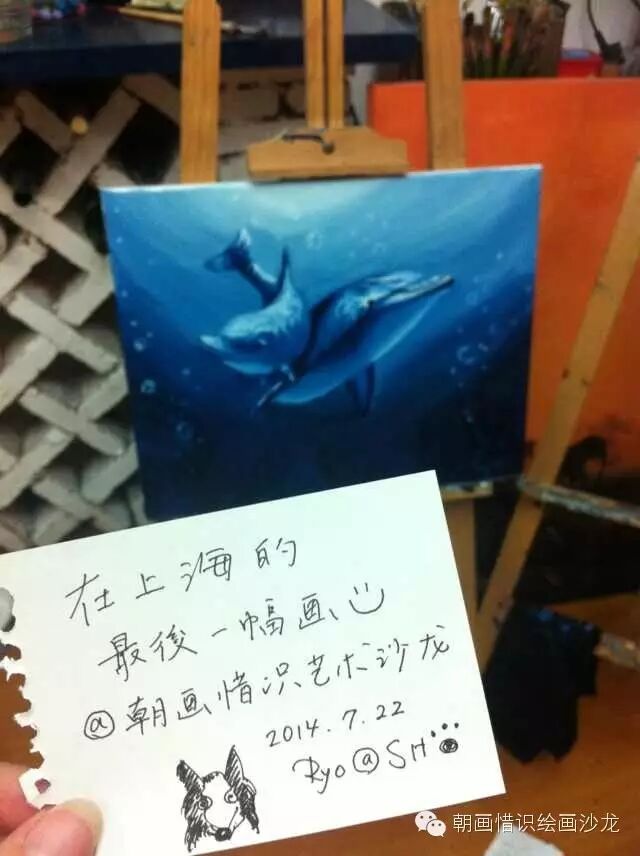 在上海的
最後一幅画
@朝画惜识艺术沙龙
2014.7.22
Ryo@SH
朝画惜识绘画沙龙